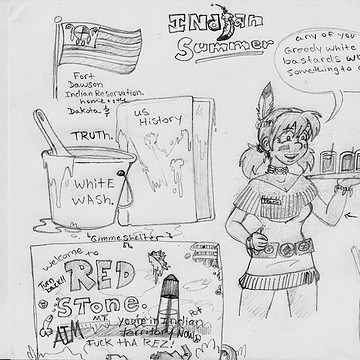 INdian
Summer
any of you
Greedy white
bastards w
something to d
Fort
Dawson
Indian Reservation.
Dakota
TRUTH.
US
History
WHITE
WASH.
"Gimme shelter"
welcome to
RED
STONE.
MT.
AIM
you're in Indian
Territory Now
Fuck tha REZ!